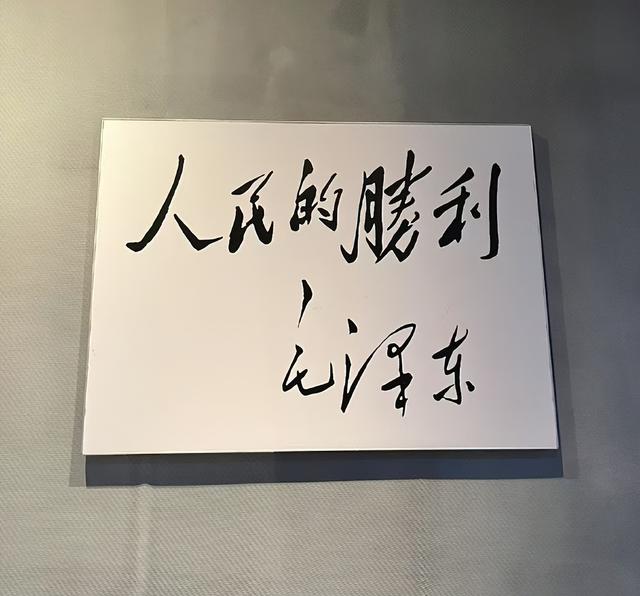 人民的勝利
毛泽东